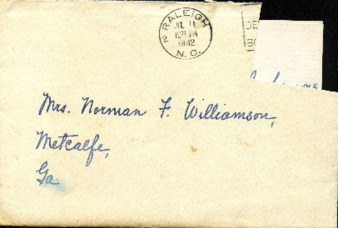 RALEIGH
JUL 11
1942
N.C.
DE
BO
Mrs. Norman F. Williamson,
Metcalfe,
Ga